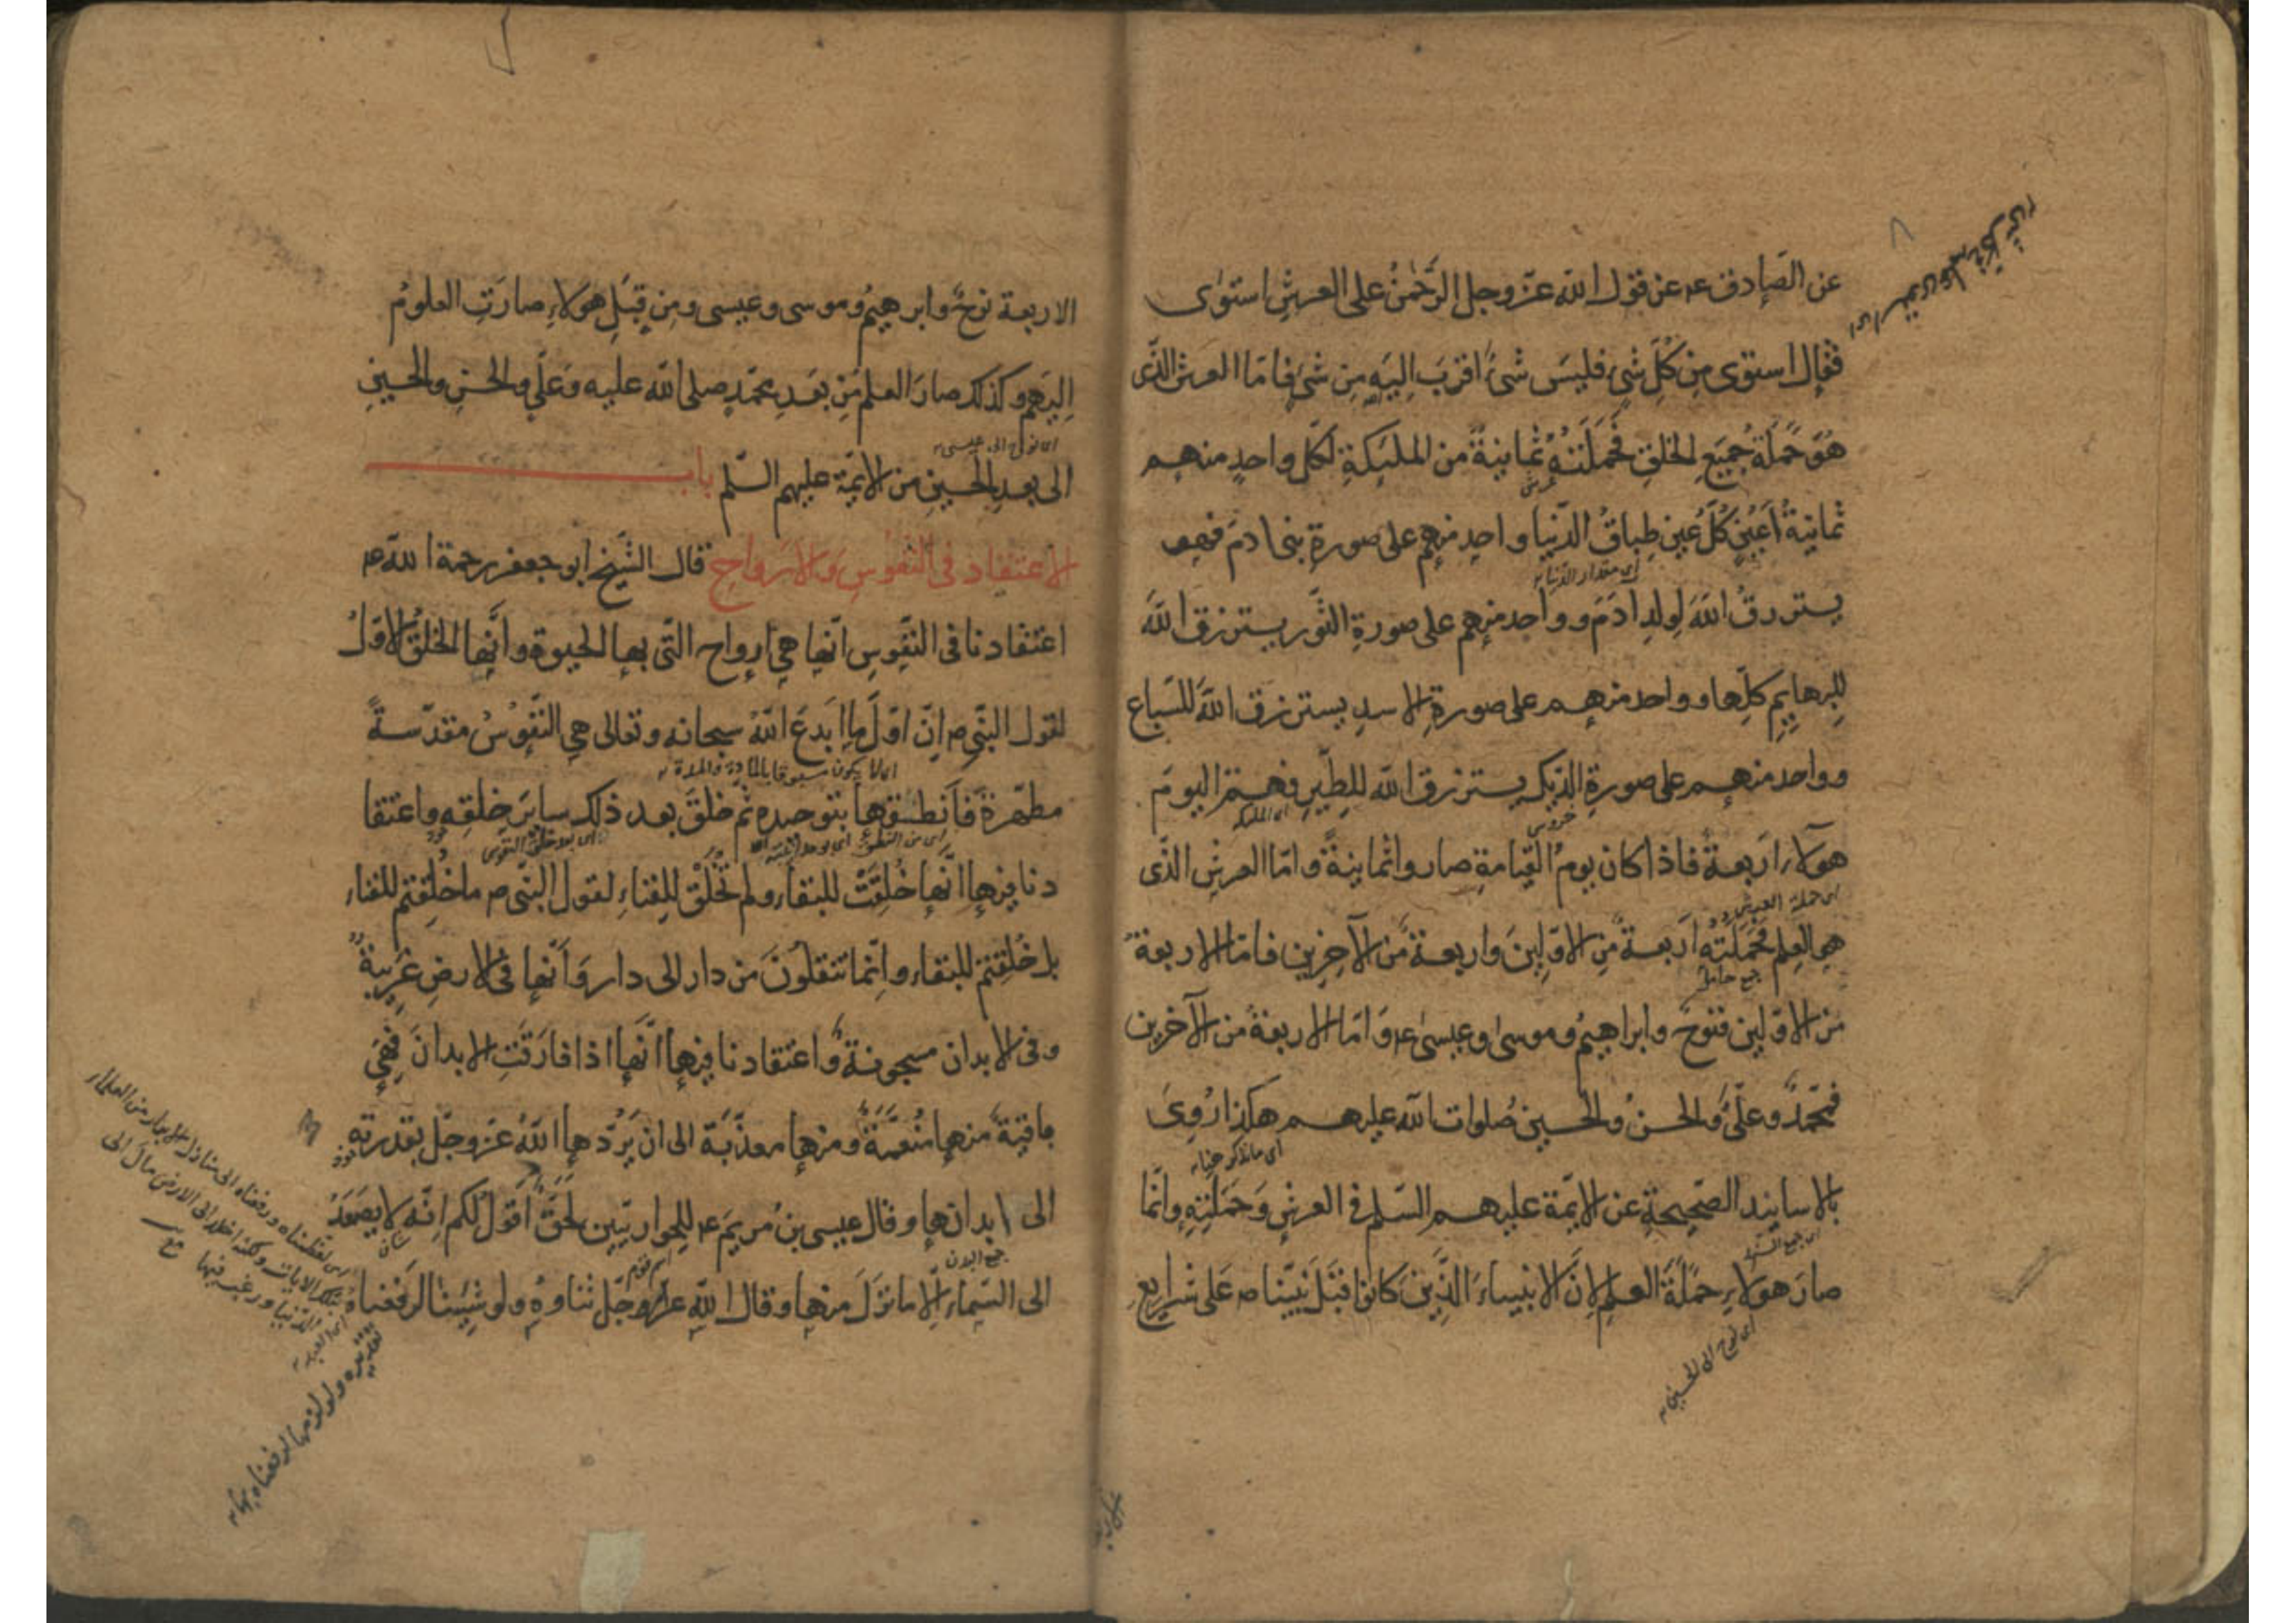 عن الصادق ع عن قول الله عز وجل الرَّحْمٰنُ على العرشِ استوٰى
فقال استوى مِن كُلِّ شىءٍ فليسَ شىءٌ اقربَ اِليَهِ مِن شىءٍ فامّا العرش الذّى
هُوَ حَمَلَة جُمَيَعِ الخلقِ فَحَمَلَتُهُ ثمانيةٌ من الملٰئِكةِ لكلّ واحدٍ منهم
عرش
ثمانيةُ اَعَيُنٍ كُلّ عين طِباقُ الدّنيا واحد منهم على صورةِ بنى ادمَ فهو
اى مقدار الدّنيا
يسترزقُ اللهَ لِولدِ ادَمَ وواحد منهم على صورةِ الثّور يسترزق اللهَ
للبهايِمِ كلِّها وواحد منهم على صورةِ الاسدِ يسترزق اللهَ للسّباع
وواحد منهم على صورةِ الدّيك يسترزق الله للطّيرِ فهم اليومَ
خروس
هؤلاءِ اَربعةٌ فاذا كان يومُ القيامةِ صاروا ثمانيةً وامّا العرش الذّى
اى حملة العرش
هى العِلم فَحَمَلَتُهُ اَربعةٌ مِن الاوّلينَ واربعةٌ مّن الآخِرين فامّا الاربعةُ
جمع حامل
مّن الاوّلين فنوحٌ وابراهيمُ وموسىٰ وعيسىٰ ع وَامّا الاربعةُ من الآخرين
فمحّمدٌ وعلىٌّ والحسنُ والحسينُ صَلوات الله عليهم هكذا رُوِىَ
بالاسانيد الصّحيحةِ عن الائِمّة عليهم السّلم فى العرشِ وَحَمَلَتِهِ وانّما
صارَ هولاءِ حَمَلَةَ العلمِ لاِنَّ الانبياءَ الذّينَ كانوا قبْلَ نبيّنا ص عَلى شرايعِ
اى نوح الى الحسين
الاربعة نوحٌ وابرهيمُ وموسى وعيسى ومِن قِبَلِ هولاءِ صارَتِ العلومُ
اِليَهم وكذلك صارَ العلم مِن بَعَدِ محمّدٍ صلى الله عليه وَعَلّىٍ والحسنِ والحسينِ
اى نوح الى عيسى
الى بعدِ الحُسينِ من الائِمّة عليهم السّلم باب
الاعتقاد فى النفوسِ وَالاَرواحِ قال الشّيخ ابو جعفر رحمة الله ع
اعتقادنا فى النّفوسِ انّها هِىَ ارواح التّى بها الحيوة وانَّها الخلقُ الاوّلُ
لقول النبّى ص اِنّ اوّلَ ما اَبدعَ اللهُ سبحانه وتعالى هى النّفوسُ مقدّسةً
اى لا يكون مسبوقا بالمادة والمدة
مطهّرةً فاَنطقها بتوحيده ثم خلقَ بعد ذلك سايرَ خلقِهِ واعتقا
اى بعد خلق النفوس
دنا فيها انّها خُلِقَتْ للبقاء ولم تُخْلَقْ للفِناءِ لقول النبّى ص ما خُلِقتم للفناء
بل خُلِقتم للبقاء واِنّما تنقلُونَ من دار الى دار وَاَنّها فى الارضِ غرِيبةٌ
وفى الابدان مسجونةٌ واعتقادنا فيها اَنَّها اذا فارَقَتِ الابدانَ فهِىَ
باقيةٌ منها مُنعَّمَةٌ ومنها معذّبَة الى ان يَرُدّها اللهُ عَزّ وجلّ بقدرته
الى ابدانها وقال عيسى بنُ مريَمَ ع للحواريّين بحقّ اَقولُ لكم اِنّه لا يصعَدُ
شان
جمع البدن
الى السّماءِ اِلّا ما نزَلَ منها وقال الله عزّ وجلّ ثناوهُ ولو شِئنا لرفعناهُ
تقديره ولو لزمها لرفعناه بها